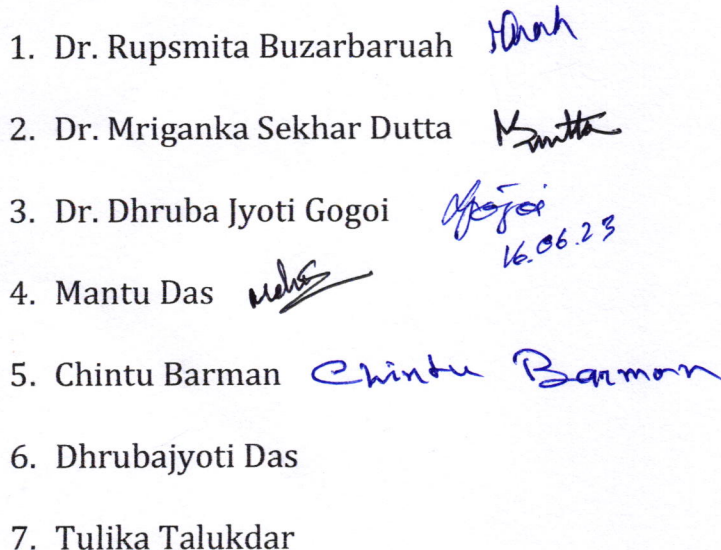 1. Dr. Rupsmita Buzarbaruah
2. Dr. Mriganka Sekhar Dutta
3. Dr. Dhruba Jyoti Gogoi
16.06.23
4. Mantu Das
5. Chintu Barman Chintu Barman
6. Dhrubajyoti Das
7. Tulika Talukdar